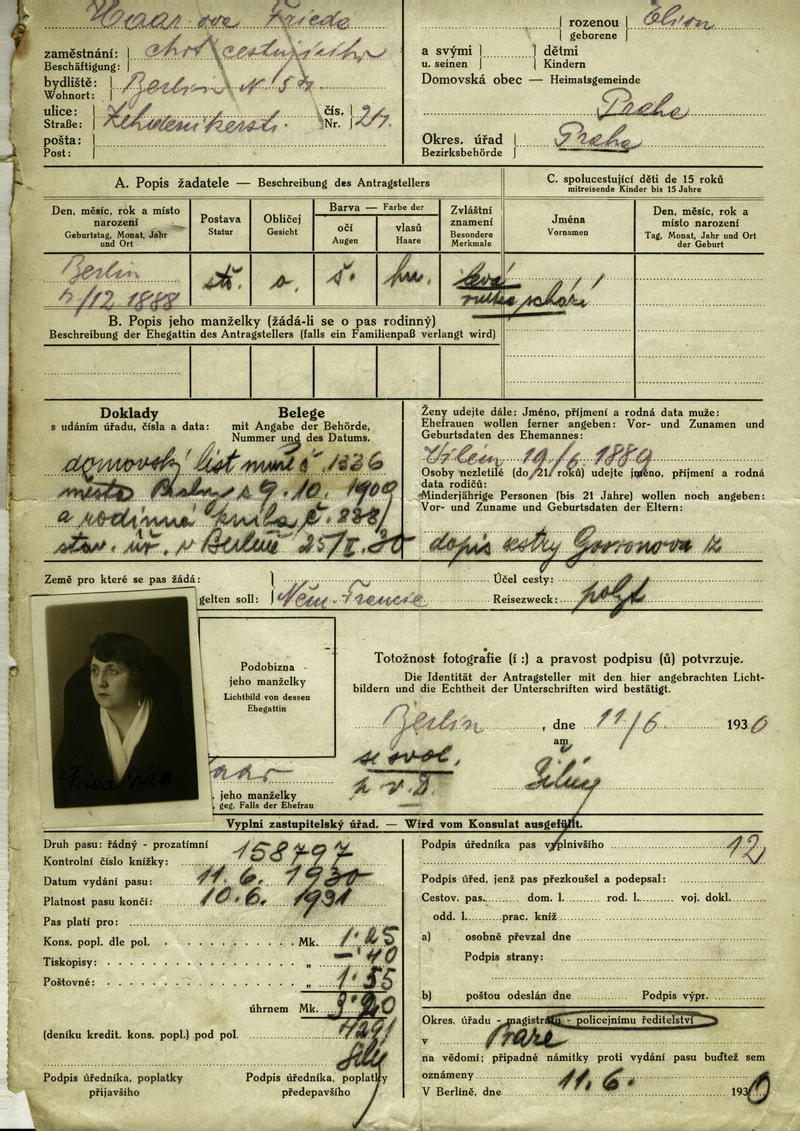 Haarova Frieda
rozenou
geborene
Elion
zaměstnání:
Beschäftigung:
choť cestujícího
bydliště:
Wohnort:
Berlin N 54
ulice:
Straße:
Zehdenikerstr.
čís.
Nr.
24.
pošta:
Post:
a svými
u. seinen
dětmi
Kindern
Domovská obec — Heimatsgemeinde
Praha
Okres. úřad
Bezirksbehörde
Praha
A. Popis žadatele — Beschreibung des Antragstellers
Den, měsíc, rok a místo
narození
Geburtstag, Monat, Jahr
und Ort
Postava
Statur
Obličej
Gesicht
Barva — Farbe der
očí
Augen
vlasů
Haare
Zvláštní
znamení
Besondere
Merkmale
Berlin
/12 1888
stř.
o.
š.
hn.
levá
ruka schází
C. spolucestující děti de 15 roků
mitreisende Kinder bis 15 Jahre
Jména
Vornamen
Den, měsíc, rok a
místo narození
Tag, Monat, Jahr und Ort
der Geburt
B. Popis jeho manželky (žádá-li se o pas rodinný)
Beschreibung der Ehegattin des Antragstellers (falls ein Familienpaß verlangt wird)
Doklady
s udáním úřadu, čísla a data:
Belege
mit Angabe der Behörde,
Nummer und des Datums.
domovský list č. 1336
města Prahy z 9. 10. 1909
a rodinná kniha č. 838/
stav. úř. v Berlíně 25/I. 30
Ženy udejte dále: Jméno, příjmení a rodná data muže:
Ehefrauen wollen ferner angeben: Vor- und Zunamen und
Geburtsdaten des Ehemannes:
Vilém 19/6. 1889
Osoby nezletilé (do 21. roků) udejte jméno, příjmení a rodná
data rodičů:
Minderjährige Personen (bis 21 Jahre) wollen noch angeben:
Vor- und Zuname und Geburtsdaten der Eltern:
dopis sestry
Země pro které se pas žádá:
gelten soll:
Něm. Francie
Účel cesty:
Reisezweck:
pobyt
Podobizna
jeho manželky
Lichtbild von dessen
Ehegattin
Frieda Haar
jeho manželky
geg. Falls der Ehefrau
Totožnost fotografie (í :) a pravost podpisu (ů) potvrzuje.
Die Identität der Antragsteller mit den hier angebrachten Licht-
bildern und die Echtheit der Unterschriften wird bestätigt.
Berlin , dne 11/6 1930
am
se svol.
Vyplní zastupitelský úřad. — Wird vom Konsulat ausgefüllt.
Druh pasu: řádný - prozatímní
Kontrolní číslo knížky: 158797
Datum vydání pasu: 11. 6. 1930
Platnost pasu končí: 10. 6. 1931
Pas platí pro:
Kons. popl. dle pol. Mk. 1·25
Tiskopisy: „ —·40
Poštovné: „ 1·55
úhrnem Mk. 3·20
(deníku kredit. kons. popl.) pod pol. 4291
Podpis úředníka, poplatky
přijavšího
Podpis úředníka, poplatky
předepavšího
Podpis úředníka pas vyplnivšího 12
Podpis úřed. jenž pas přezkoušel a podepsal:
Cestov. pas. dom. l. rod. l. voj. dokl.
odd. l. prac. kniž
a) osobně převzal dne
Podpis strany:
b) poštou odeslán dne Podpis výpr.
Okres. úřadu - magistrátu - policejnímu ředitelství
v Praze
na vědomí; připadné námitky proti vydání pasu buďtež sem
oznámeny
V Berlíně, dne 11. 6. 1930